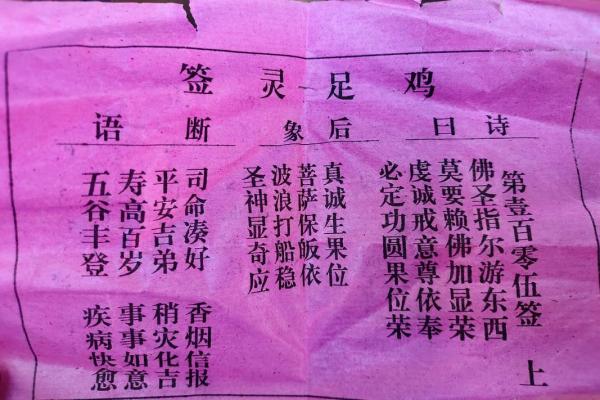 鸡足灵签
诗曰
第壹百零伍签 上
佛圣指尔游东西
莫要赖佛加显荣
虔诚戒意尊依奉
必定功圆果位荣
后象
真诚生果位
菩萨保皈依
波浪打船稳
圣神显奇应
断语
司命凑好 香烟信报
平安吉弟 稍灾化吉
寿高百岁 事事如意
五谷丰登 疾病快愈